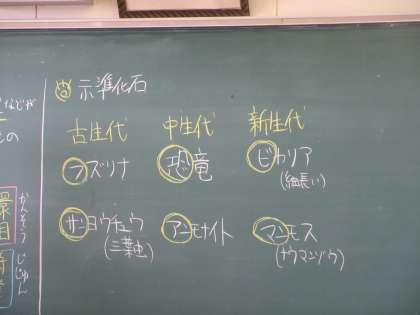 示準化石
古生代 中生代 新生代
フズリナ 恐竜 ビカリア
(細長い)
サンヨウチュウ アンモナイト マンモス
(三葉虫) (ナウマンゾウ)
かんそう
じじゅん